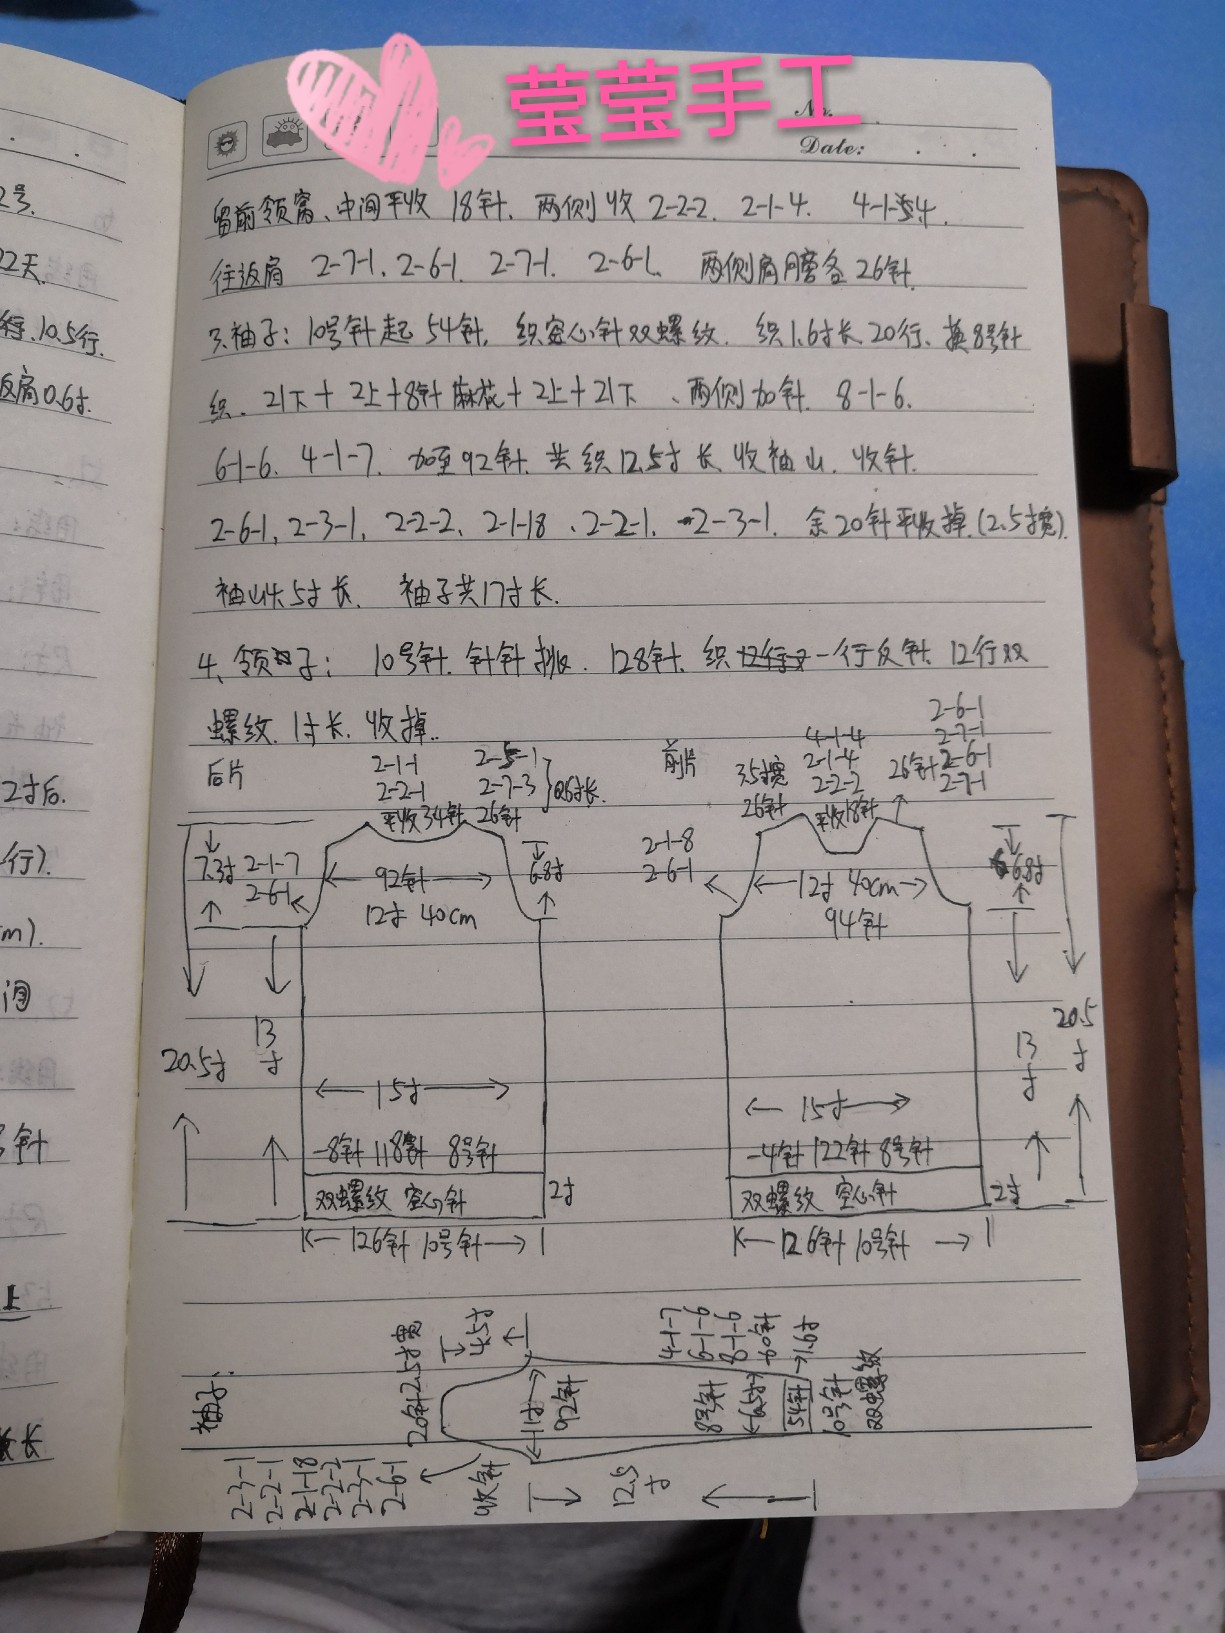 莹莹手工
No.
Date:
留前领窝、中间平收 18针. 两侧收 2-2-2. 2-1-4. 4-1-4.
往返肩 2-7-1. 2-6-1. 2-7-1. 2-6-1. 两侧肩膀各26针.
3.袖子: 10号针起54针. 织空心针双螺纹. 织1.6寸长20行、换8号针
织. 21下+2上+8针麻花+2上+21下、两侧加针. 8-1-6.
6-1-6. 4-1-7. 加至92针. 共织12.5寸长.收袖山. 收针.
2-6-1, 2-3-1, 2-2-2, 2-1-18、2-2-1. 2-3-1. 余20针平收掉.(2.5寸宽).
袖山长5寸长. 袖子共17寸长.
4、领子: 10号针.针针挑. 128针.织一行反针.12行双
螺纹.1寸长.收掉.
后片
2-1-1
2-2-1
平收34针
2-5-1
2-7-3
26针
0.6寸长.
7.3寸
2-1-7
2-6-1
92针
12寸 40cm
6.8寸
20.5寸
13寸
15寸
-8针 118针 8号针
双螺纹 空心针
2寸
126针 10号针
前片
3.5寸宽
26针
4-1-4
2-1-4
2-2-2
平收18针
26针
2-6-1
2-7-1
2-6-1
2-7-1
2-1-8
2-6-1
12寸 40cm
94针
6.8寸
13寸
20.5寸
15寸
-4针 122针 8号针
双螺纹 空心针
2寸
126针 10号针
袖子:
20针2.5寸宽
4.5寸
11寸
92针
4-1-7
6-1-6
8-1-6
8号针
54针
1.6寸
10号针
双螺纹
12.5寸
收针
2-3-1
2-2-1
2-1-18
2-2-2
2-3-1
2-6-1
2号.
22天.
10.5行.
返肩0.6寸.
2寸后.
行).
m).
间
号针
上
长